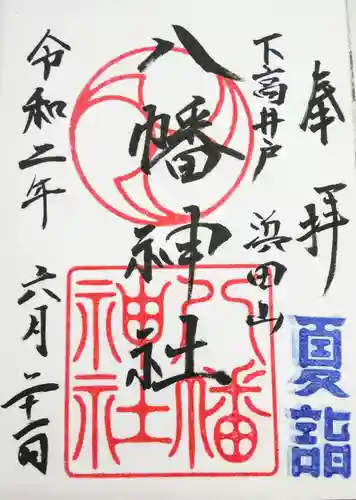 奉拝
夏詣
下高井戸
浜田山
八幡神社
八幡
神社
令和二年
六月二十一日